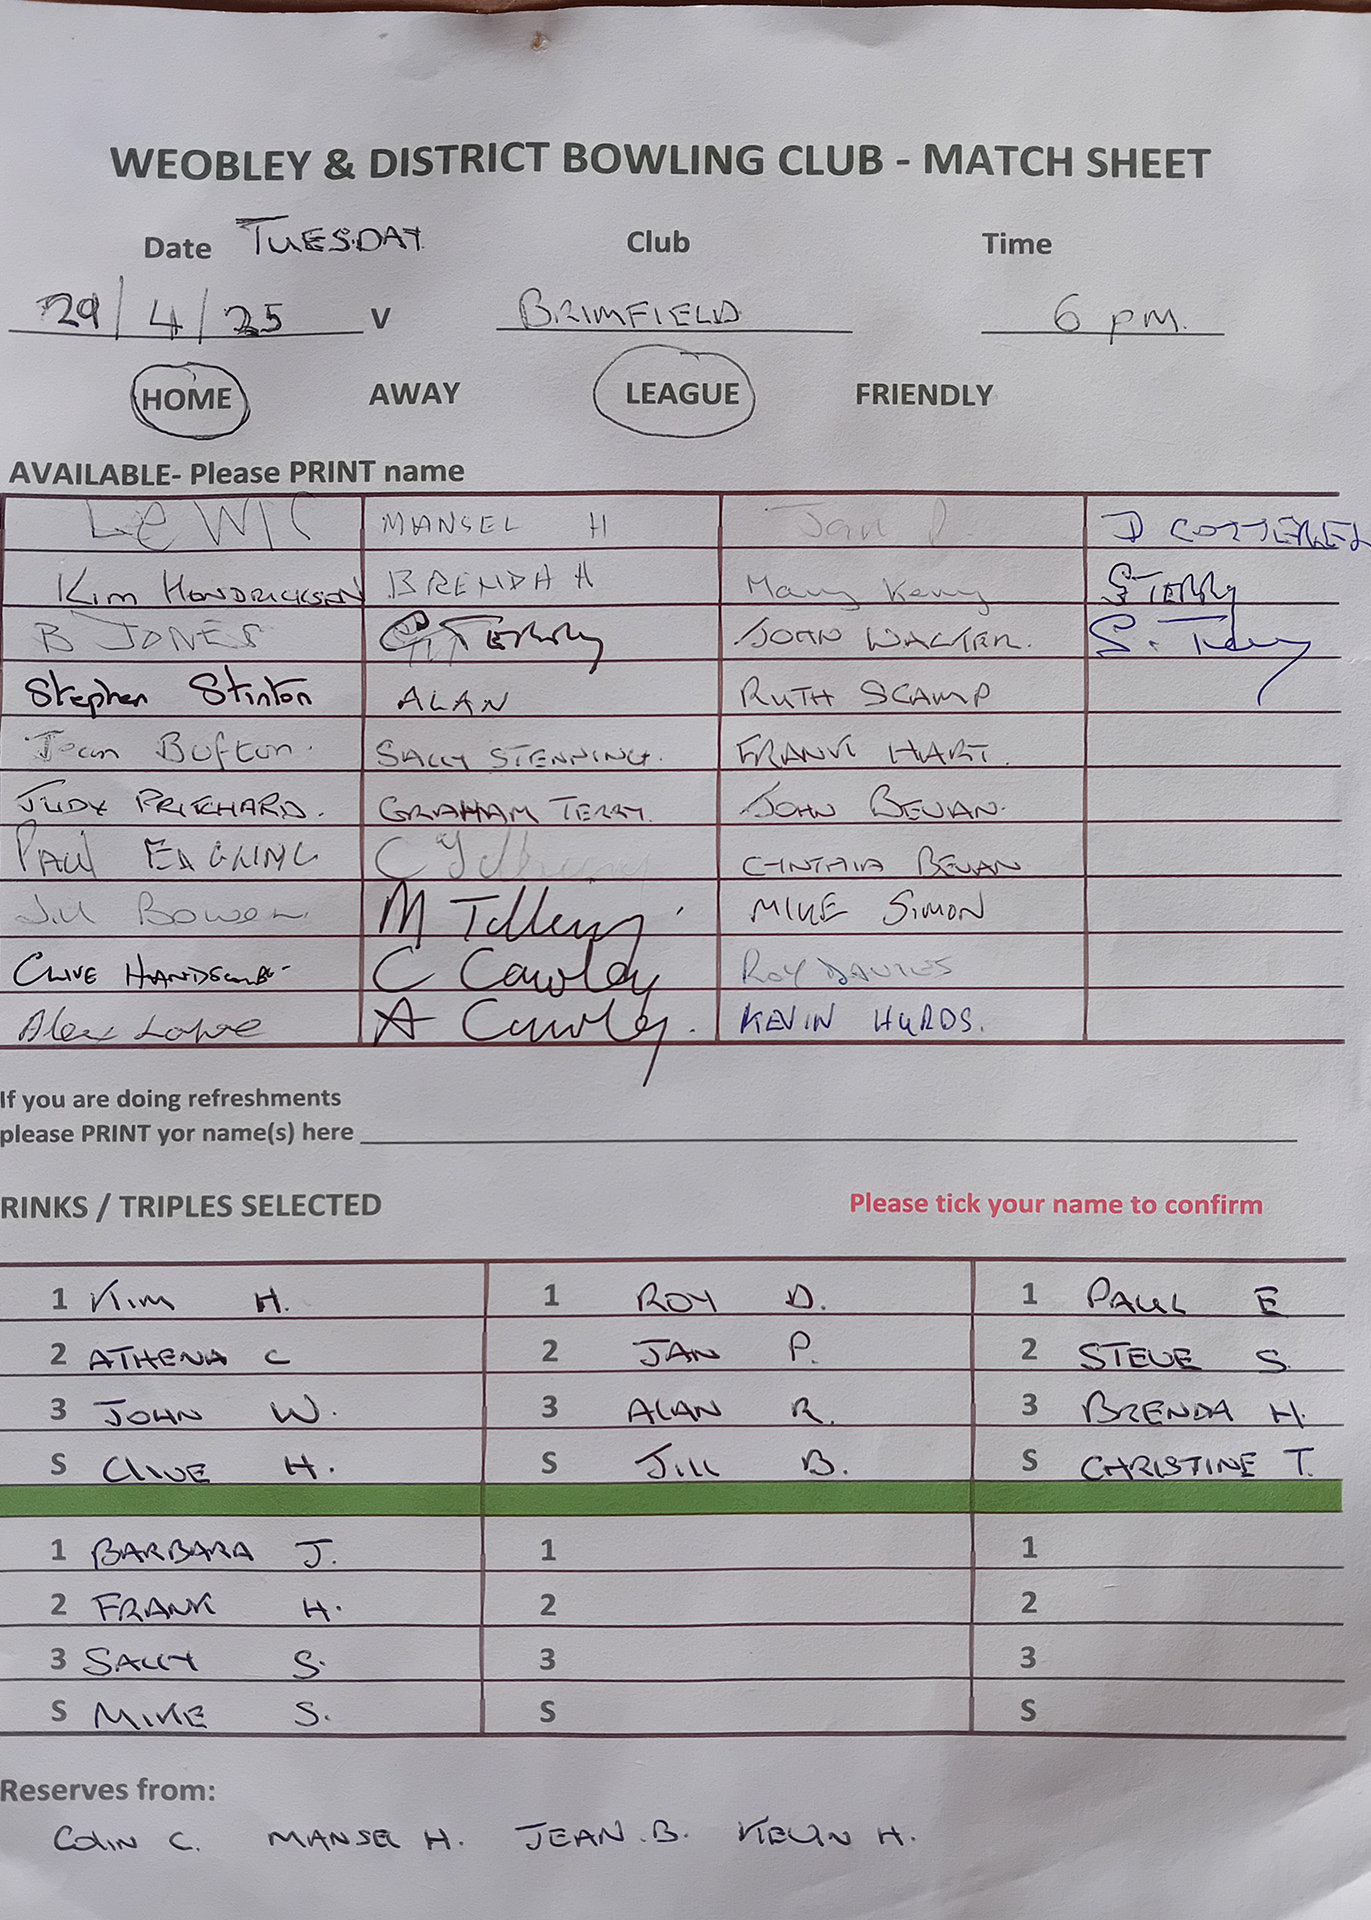 WEOBLEY & DISTRICT BOWLING CLUB - MATCH SHEET
Date TUESDAY Club Time
29/4/25 V BRIMFIELD 6 PM.
HOME AWAY LEAGUE FRIENDLY
AVAILABLE- Please PRINT name
LEWIS MANSEL H Jan P. D COTTEREL
Kim HENDRICKSON BRENDA H Mary Kenny S TERRY
B JONES G TERRY JOHN WALKER. S. Terry
Stephen Stinton ALAN RUTH SCAMP
Jean Bufton. SALLY STENNING. FRANK HART.
JUDY PRITCHARD. GRAHAM TERRY. JOHN BEVAN.
PAUL EAGLING C CYNTHIA BEVAN
Jill Bowen M MIKE SIMON
CLIVE C Cawley ROY DAVIES
Alex A Cawley. KEVIN HURDS.
If you are doing refreshments
please PRINT yor name(s) here
RINKS / TRIPLES SELECTED Please tick your name to confirm
1 KIM H. 1 ROY D. 1 PAUL E
2 ATHENA C 2 JAN P. 2 STEVE S.
3 JOHN W. 3 ALAN R. 3 BRENDA H.
S CLIVE H. S JILL B. S CHRISTINE T.
1 BARBARA J. 1 1
2 FRANK H. 2 2
3 SALLY S. 3 3
S MIKE S. S S
Reserves from:
COLIN C. MANSEL H. JEAN.B. KEVIN H.